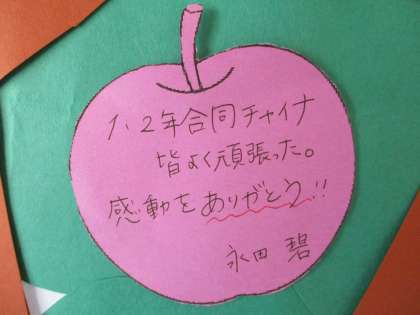 1、2年合同チャイナ
皆よく頑張った。
感動をありがとう!!
永田 碧